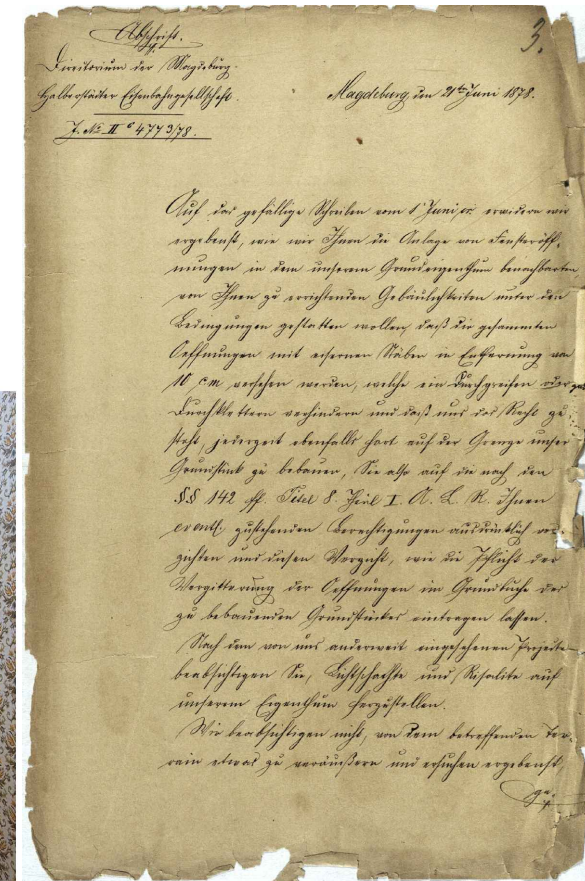 3.
Abschrift.
Directorium der Magdeburg-
Halberstädter Eisenbahngesellschaft
J. № II c 4773/78.
Magdeburg, den 21ten Juni 1878.
Auf das gefällige Schreiben vom 6 Juni cr. erwidern wir
ergebenst, wie wir Ihnen die Anlage von Fensteröff-
nungen in dem unserem Grundeigenthum benachbarten,
von Ihnen zu errichtenden Gebäulichkeiten unter den
Bedingungen gestatten wollen, daß die gesammten
Oeffnungen mit eisernen Stäben in Entfernung von
10 cm versehen werden, welche ein Durchgreifen oder
Durchklettern verhindern und daß uns das Recht zu-
steht, jederzeit ebenfalls hart auf der Grenze unser
Grundstück zu bebauen, Sie also auf die nach den
§§ 142 ff. Titel 8. Theil I. A. L. R. Ihnen
eventl. zustehenden Berechtigungen ausdrücklich ver-
zichten und diesen Verzicht, wie die Pflicht der
Vergitterung der Oeffnungen im Grundbuche des
zu bebauenden Grundstückes eintragen lassen.
Nach dem von uns anderweit eingesehenen Projecte
beabsichtigen Sie, Lichtschachte und Risalite auf
unserem Eigenthum herzustellen.
Wir beabsichtigen nicht, von dem betreffenden Ter-
rain etwas zu veräußern und ersuchen ergebenst,